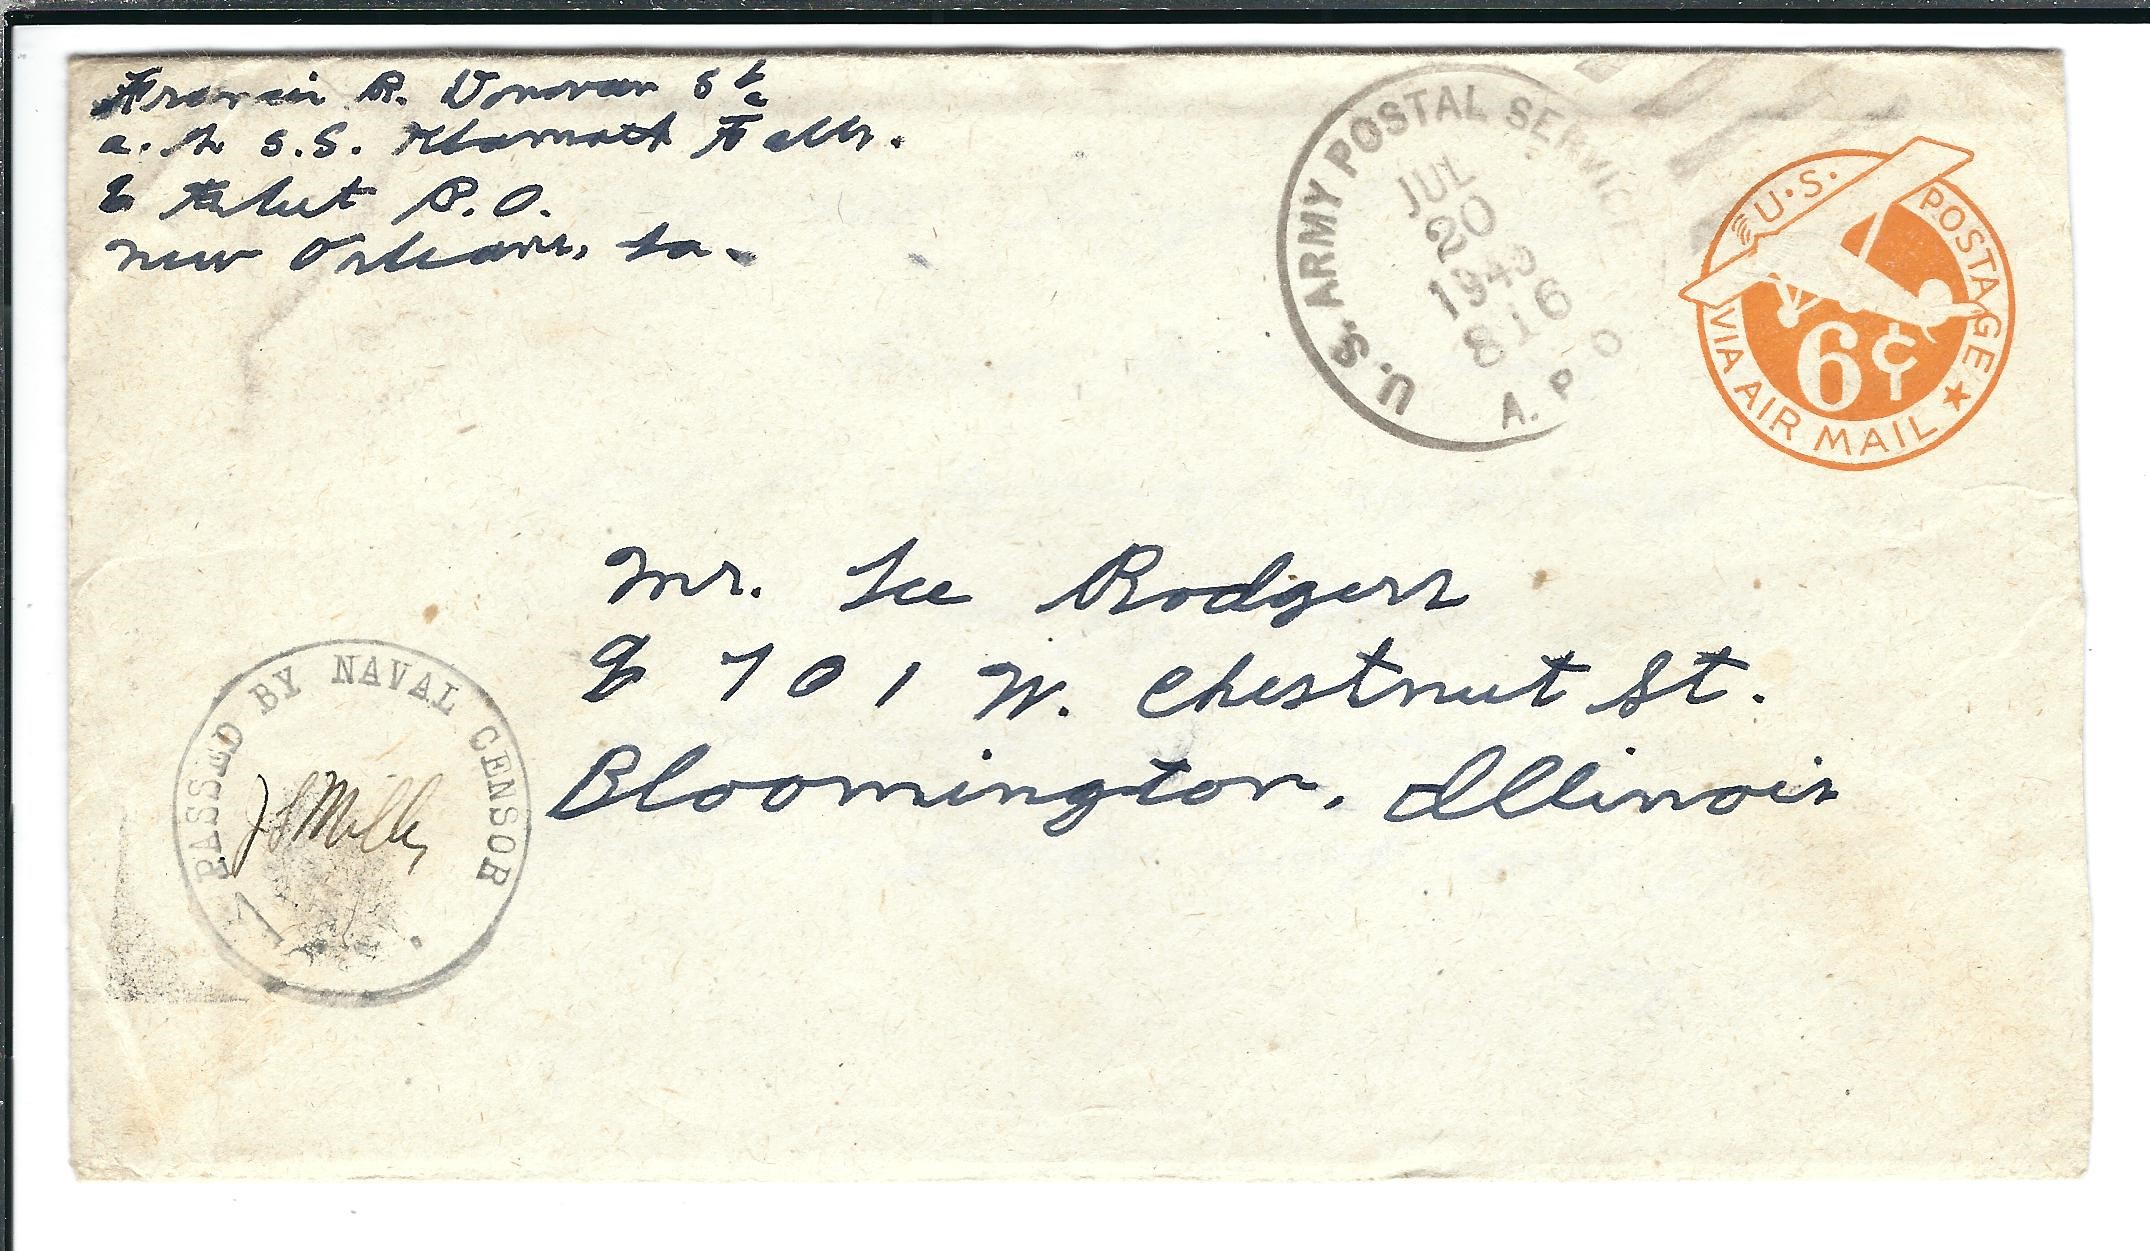 Francis R. Donovan S 1/c
a. G. S.S. Klamath Falls.
% Fleet P.O.
New Orleans, La.
U.S. ARMY POSTAL SERVICE
JUL
20
1945
816
A. P O
U.S. POSTAGE
6¢
VIA AIR MAIL
Mr. Lee Rodgers
% 701 W. Chestnut St.
Bloomington, Illinois
PASSED BY NAVAL CENSOR